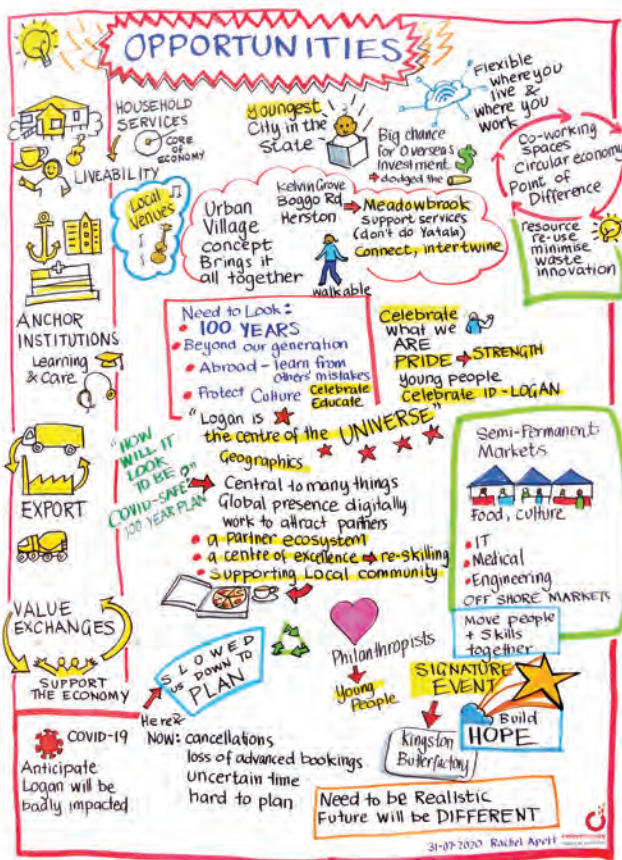 OPPORTUNITIES
HOUSEHOLD
SERVICES
CORE
OF
ECONOMY
LIVEABILITY
ANCHOR
INSTITUTIONS
Learning
& Care
EXPORT
VALUE
EXCHANGES
SUPPORT
THE ECONOMY
youngest
City in the
State
Big chance
for Overseas
Investment
dodged the
Flexible
where you
live &
where you
work
Co-working
Spaces
Circular economy
Point of
Difference
resource
re-use
minimise
waste
innovation
Local
Venues
Urban
Village
concept
Brings it
all together
Kelvin Grove
Boggo Rd
Herston
Meadowbrook
support services
(don't do Yatala)
Connect, intertwine
walkable
Need to Look:
100 YEARS
Beyond our generation
Abroad - learn from
others' mistakes
Protect Culture Celebrate
Educate
Celebrate
what we
ARE
PRIDE STRENGTH
young people
Celebrate ID - LOGAN
"Logan is
the centre of the UNIVERSE"
Geographics
Central to many things
Global presence digitally
work to attract partners
a partner ecosystem
a centre of excellence re-skilling
Supporting Local community
"HOW
WILL IT
LOOK
TO BE?"
COVID-SAFE
100 YEAR PLAN
Semi-Permanent
Markets
Food, culture
IT
Medical
Engineering
OFF SHORE MARKETS
Move people
+ Skills
together
SLOWED
US DOWN TO
PLAN
Philanthropists
Young
People
SIGNATURE
EVENT
Kingston
Butterfactory
Build
HOPE
COVID-19
Anticipate
Logan will be
badly impacted
Here &
Now: cancellations
loss of advanced bookings
uncertain time
hard to plan
Need to be Realistic
Future will be DIFFERENT
31-07-2020 Rachel Apelt